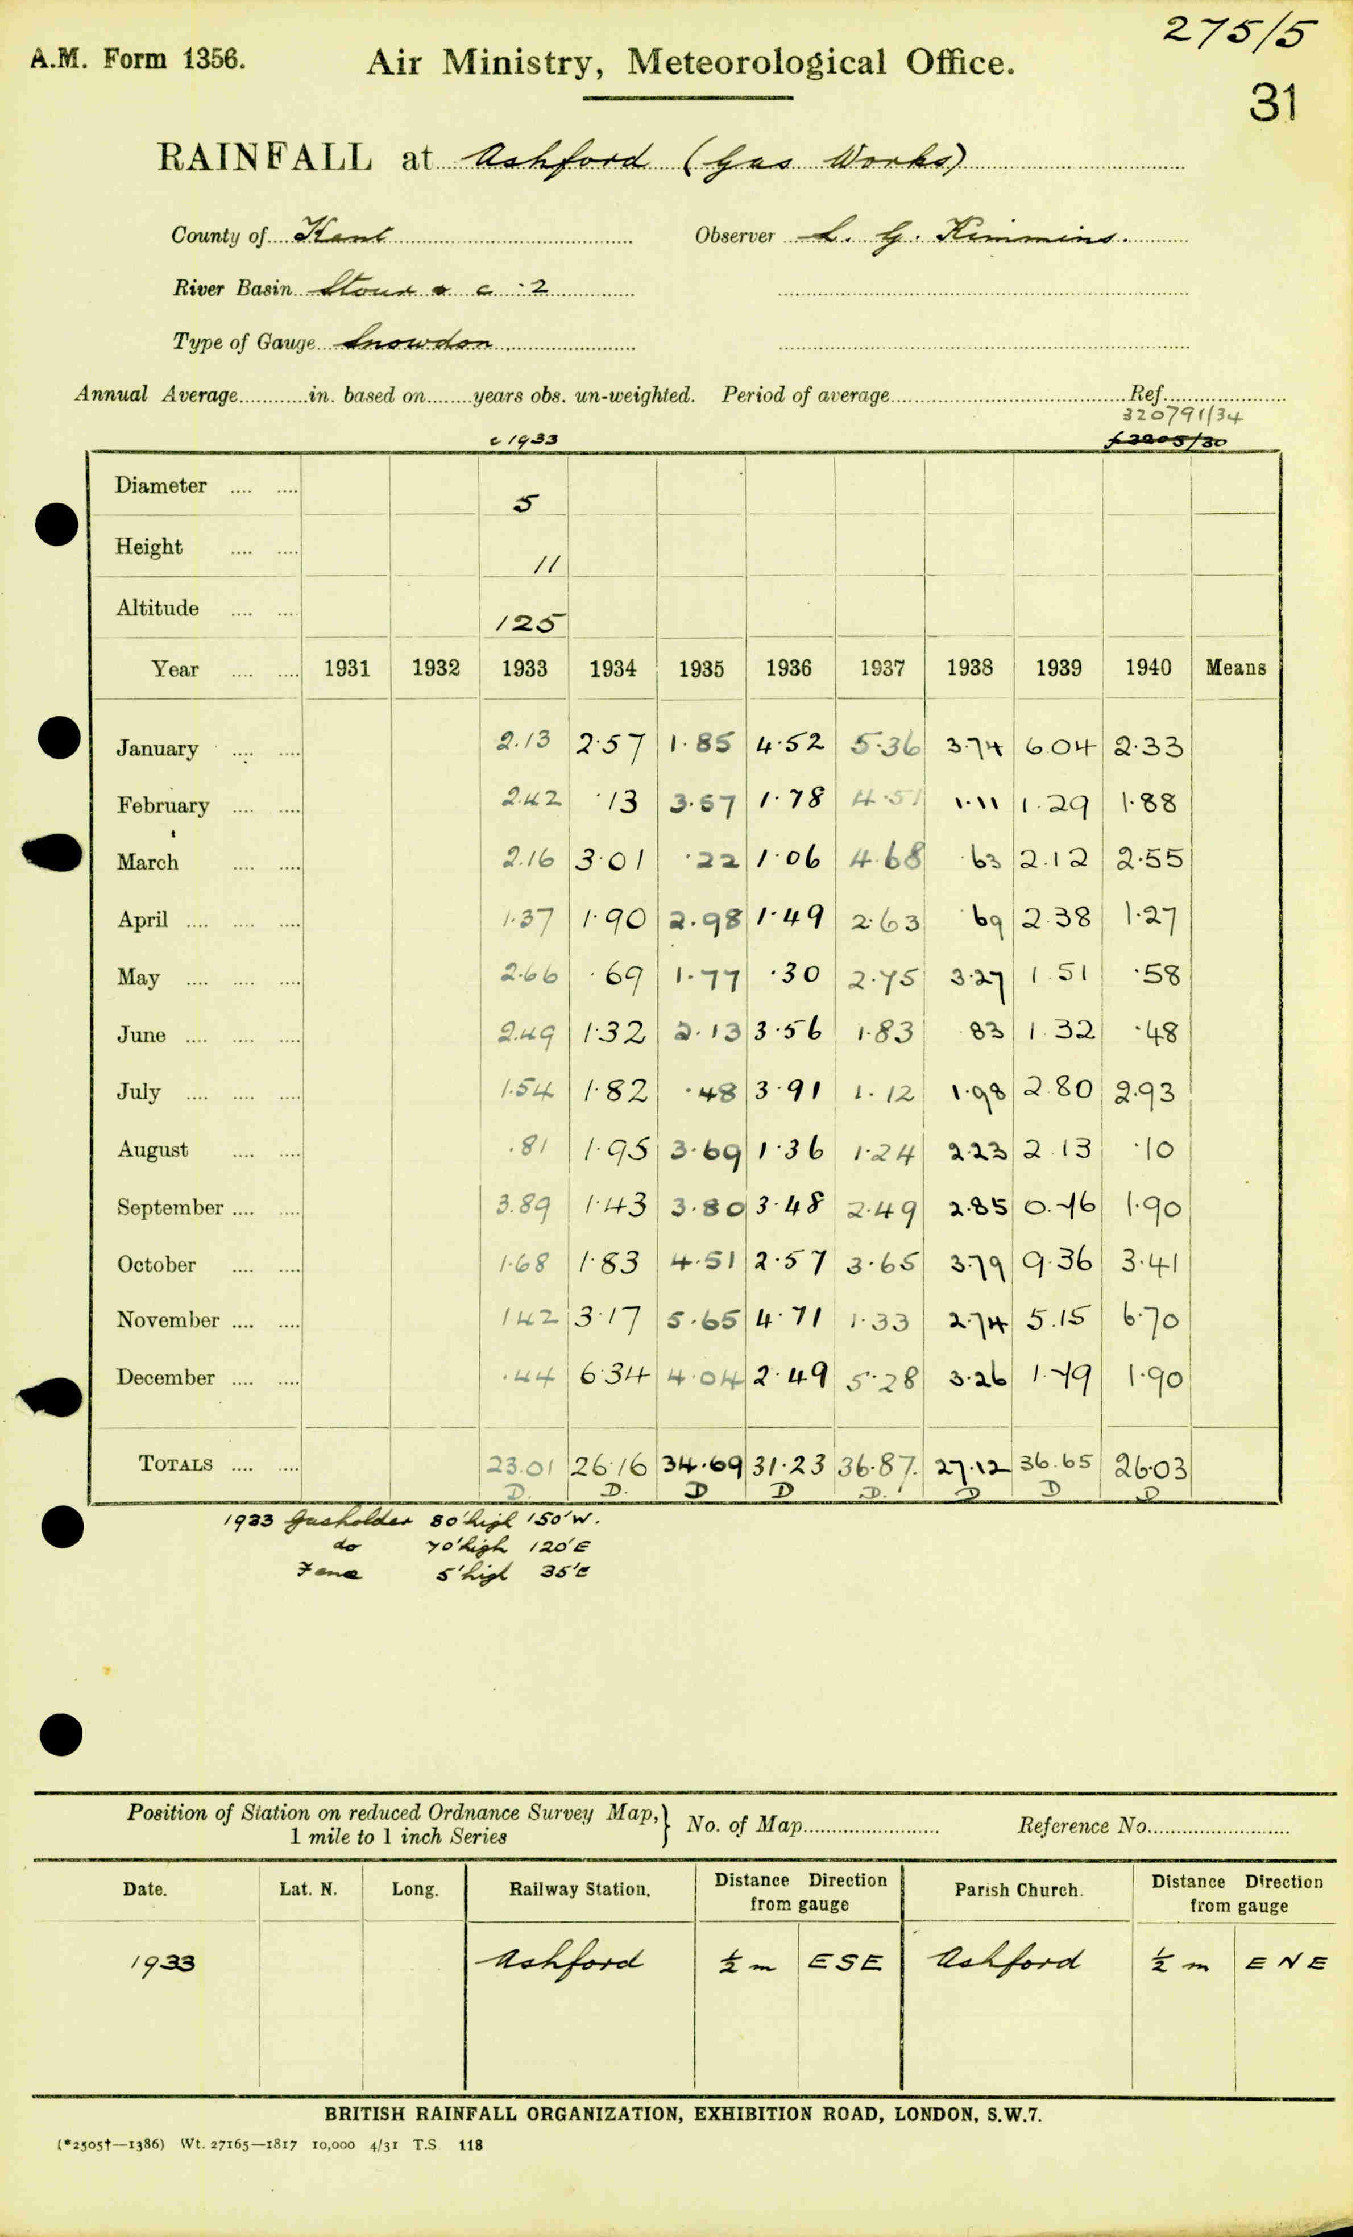 275/5
A.M. Form 1356. Air Ministry, Meteorological Office.
31
RAINFALL at Ashford (Gas Works)
County of Kent Observer L. G. Kimmins.
River Basin Stour & c ·2
Type of Gauge Snowdon
Annual Average............in. based on........years obs. un-weighted. Period of average............ Ref............
320791/34
c 1933 f 3205/30
Diameter .... .... 5
Height .... .... 11
Altitude .... .... 125
Year .... .... 1931 1932 1933 1934 1935 1936 1937 1938 1939 1940 Means
January .... .... 2.13 2·57 1·85 4·52 5·36 3·74 6.04 2·33
February .... .... 2.42 ·13 3·57 1·78 4·51 1·11 1.29 1·88
March .... .... 2.16 3·01 ·22 1·06 4·68 ·63 2.12 2·55
April .... .... .... 1·37 1·90 2.98 1·49 2·63 ·69 2.38 1·27
May .... .... .... 2·66 ·69 1·77 ·30 2·75 3·27 1.51 ·58
June .... .... .... 2.49 1·32 2·13 3·56 1·83 ·83 1.32 ·48
July .... .... .... 1·54 1·82 ·48 3·91 1·12 1·98 2.80 2·93
August .... .... .81 1·95 3·69 1·36 1·24 2·23 2.13 ·10
September .... .... 3.89 1·43 3·80 3·48 2·49 2·85 0.76 1·90
October .... .... 1·68 1·83 4·51 2·57 3·65 3·79 9.36 3·41
November .... .... 1.42 3·17 5·65 4·71 1·33 2·74 5.15 6·70
December .... .... ·44 6·34 4·04 2·49 5·28 3·26 1.79 1·90
TOTALS .... .... 23.01 26·16 34·69 31·23 36·87. 27·12 36.65 26·03
D. D. D D D. D D D
1933 Gasholder 80' high 150' W.
do 70' high 120' E
Fence 5' high 35' E
Position of Station on reduced Ordnance Survey Map, 1 mile to 1 inch Series } No. of Map............ Reference No............
Date. Lat. N. Long. Railway Station. Distance Direction from gauge Parish Church. Distance Direction from gauge
1933 Ashford ½ m ESE Ashford ½ m ENE
BRITISH RAINFALL ORGANIZATION, EXHIBITION ROAD, LONDON, S.W.7.
(*2505†—1386) Wt. 27165—1817 10,000 4/31 T.S 118